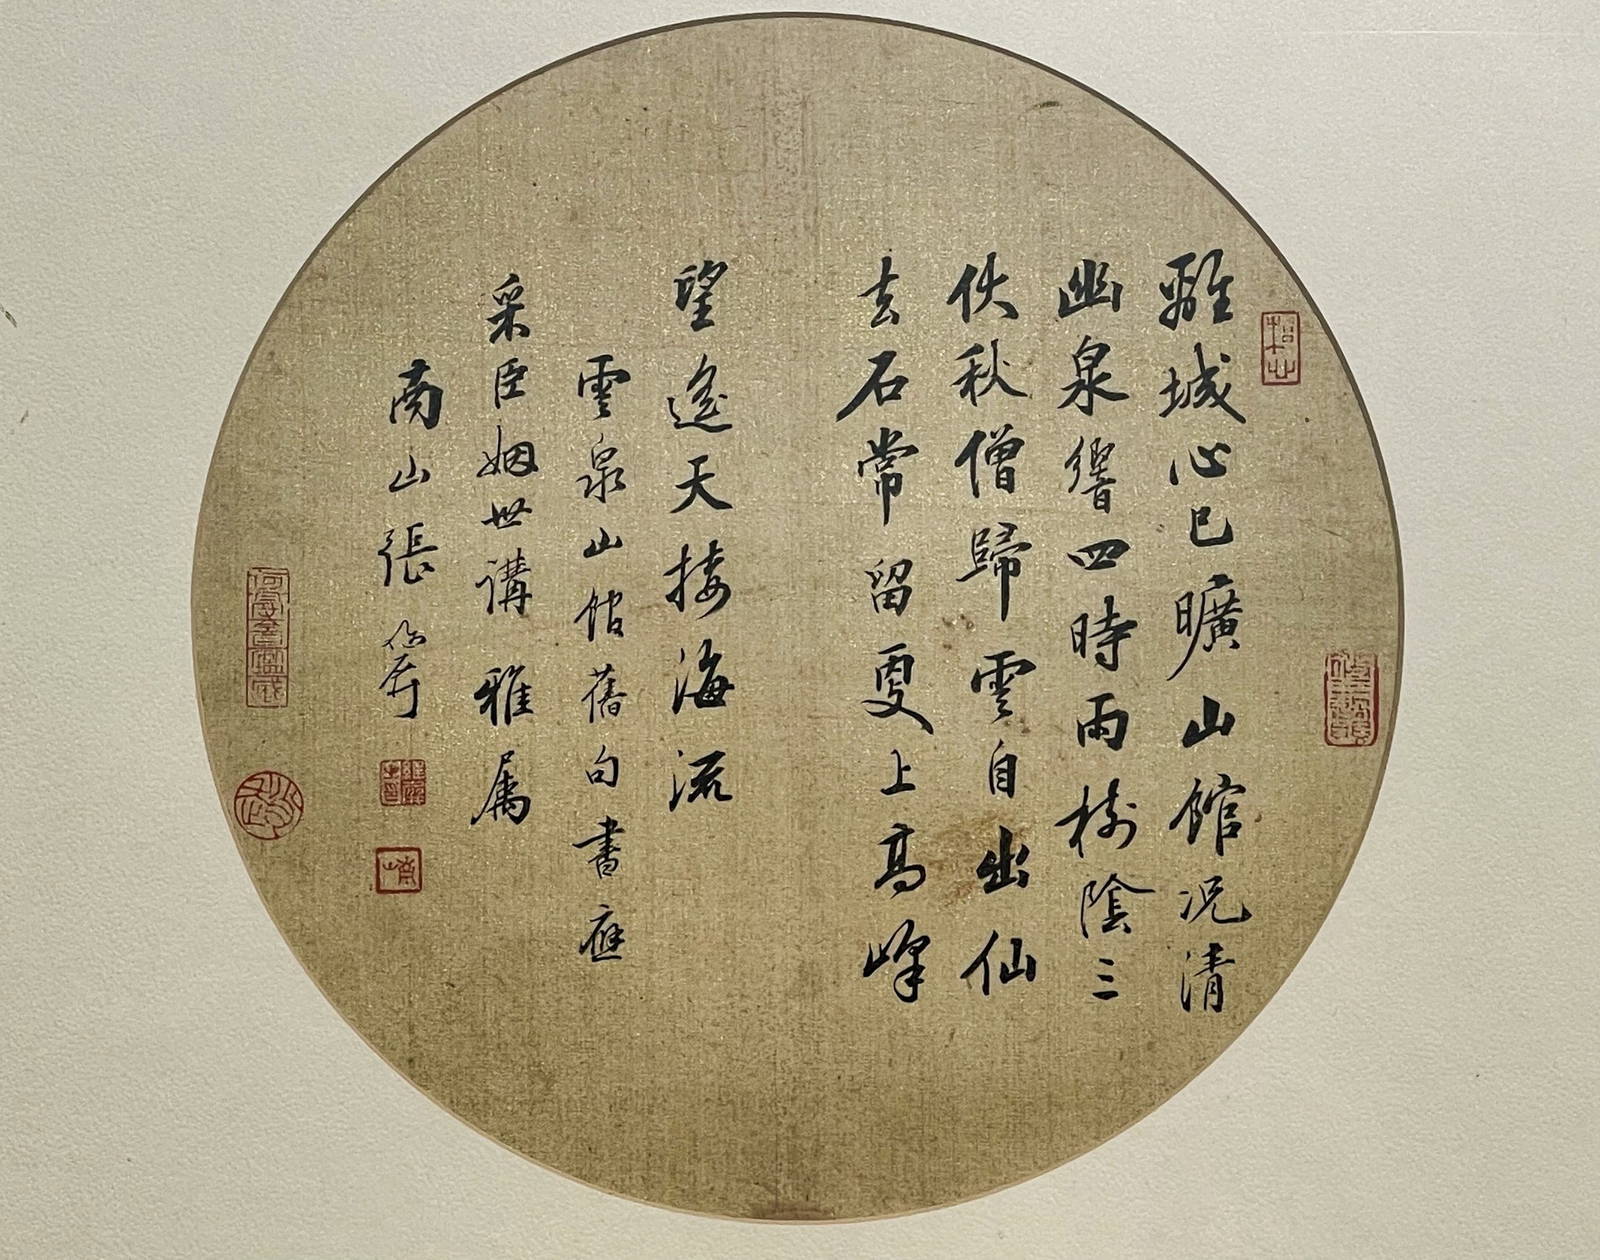 離城心已曠山館況清
幽泉響四時雨樹陰三
伏秋僧歸雲自出仙
去石常留更上高峰
望遙天接海流
雲泉山館舊句書應
采臣姻世講雅屬
南山張維屏